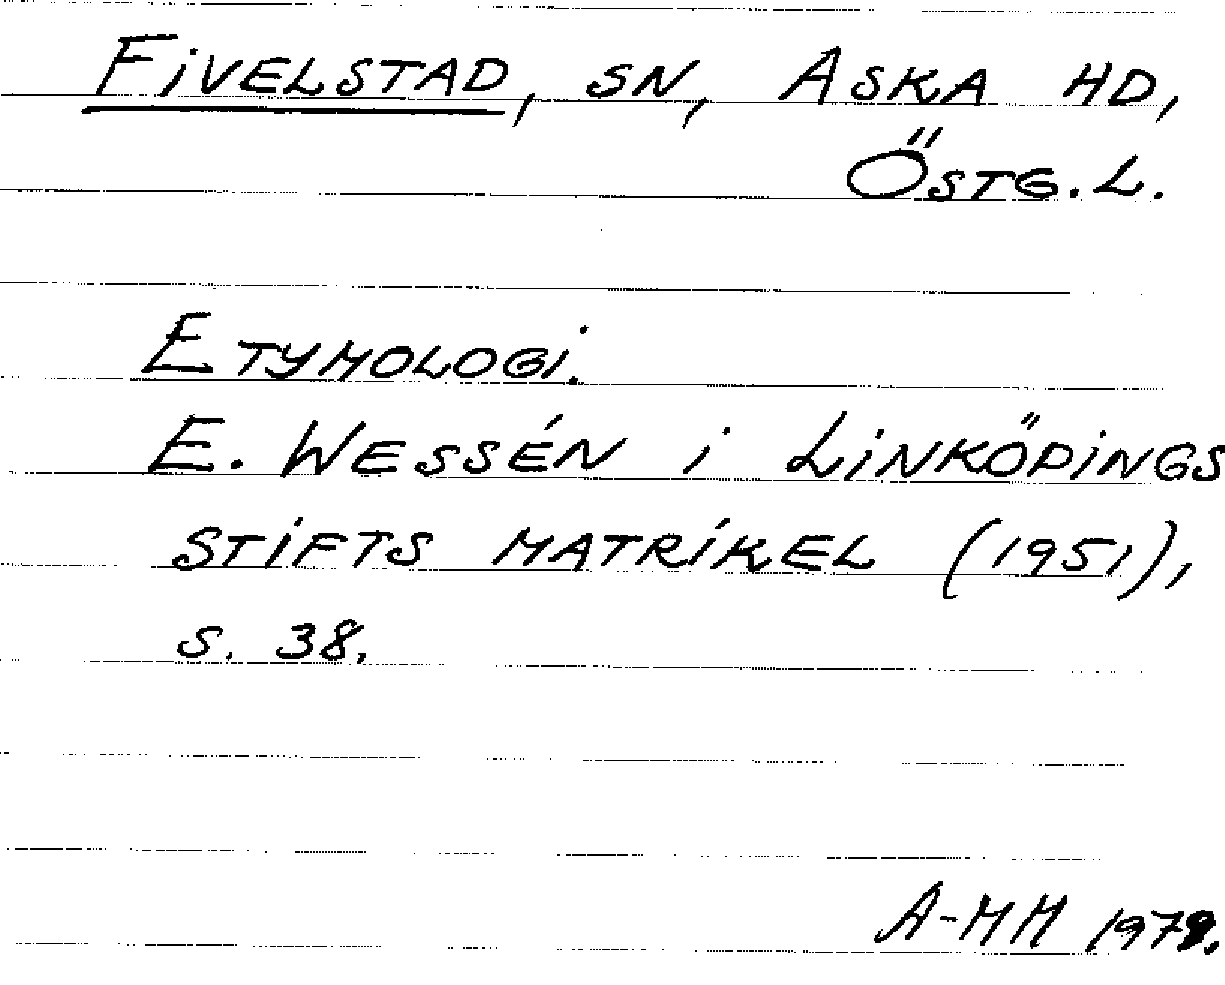 FIVELSTAD, SN, ASKA HD,
ÖSTG. L.
ETYMOLOGI.
E. WESSÉN I LINKÖPINGS
STIFTS MATRIKEL (1951),
S. 38.
A-MH